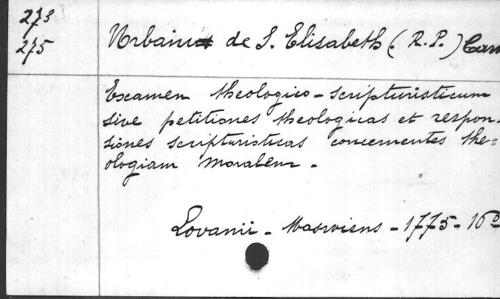 273
275
Urbain de S. Elisabeth (R.P.) Carm
Examen theologico-scripturisticum
sive petitiones theologicas et respon-
siones scripturisticas concernentes the=
ologiam moralem.
Lovanii - Maswiens - 1775 - 16°